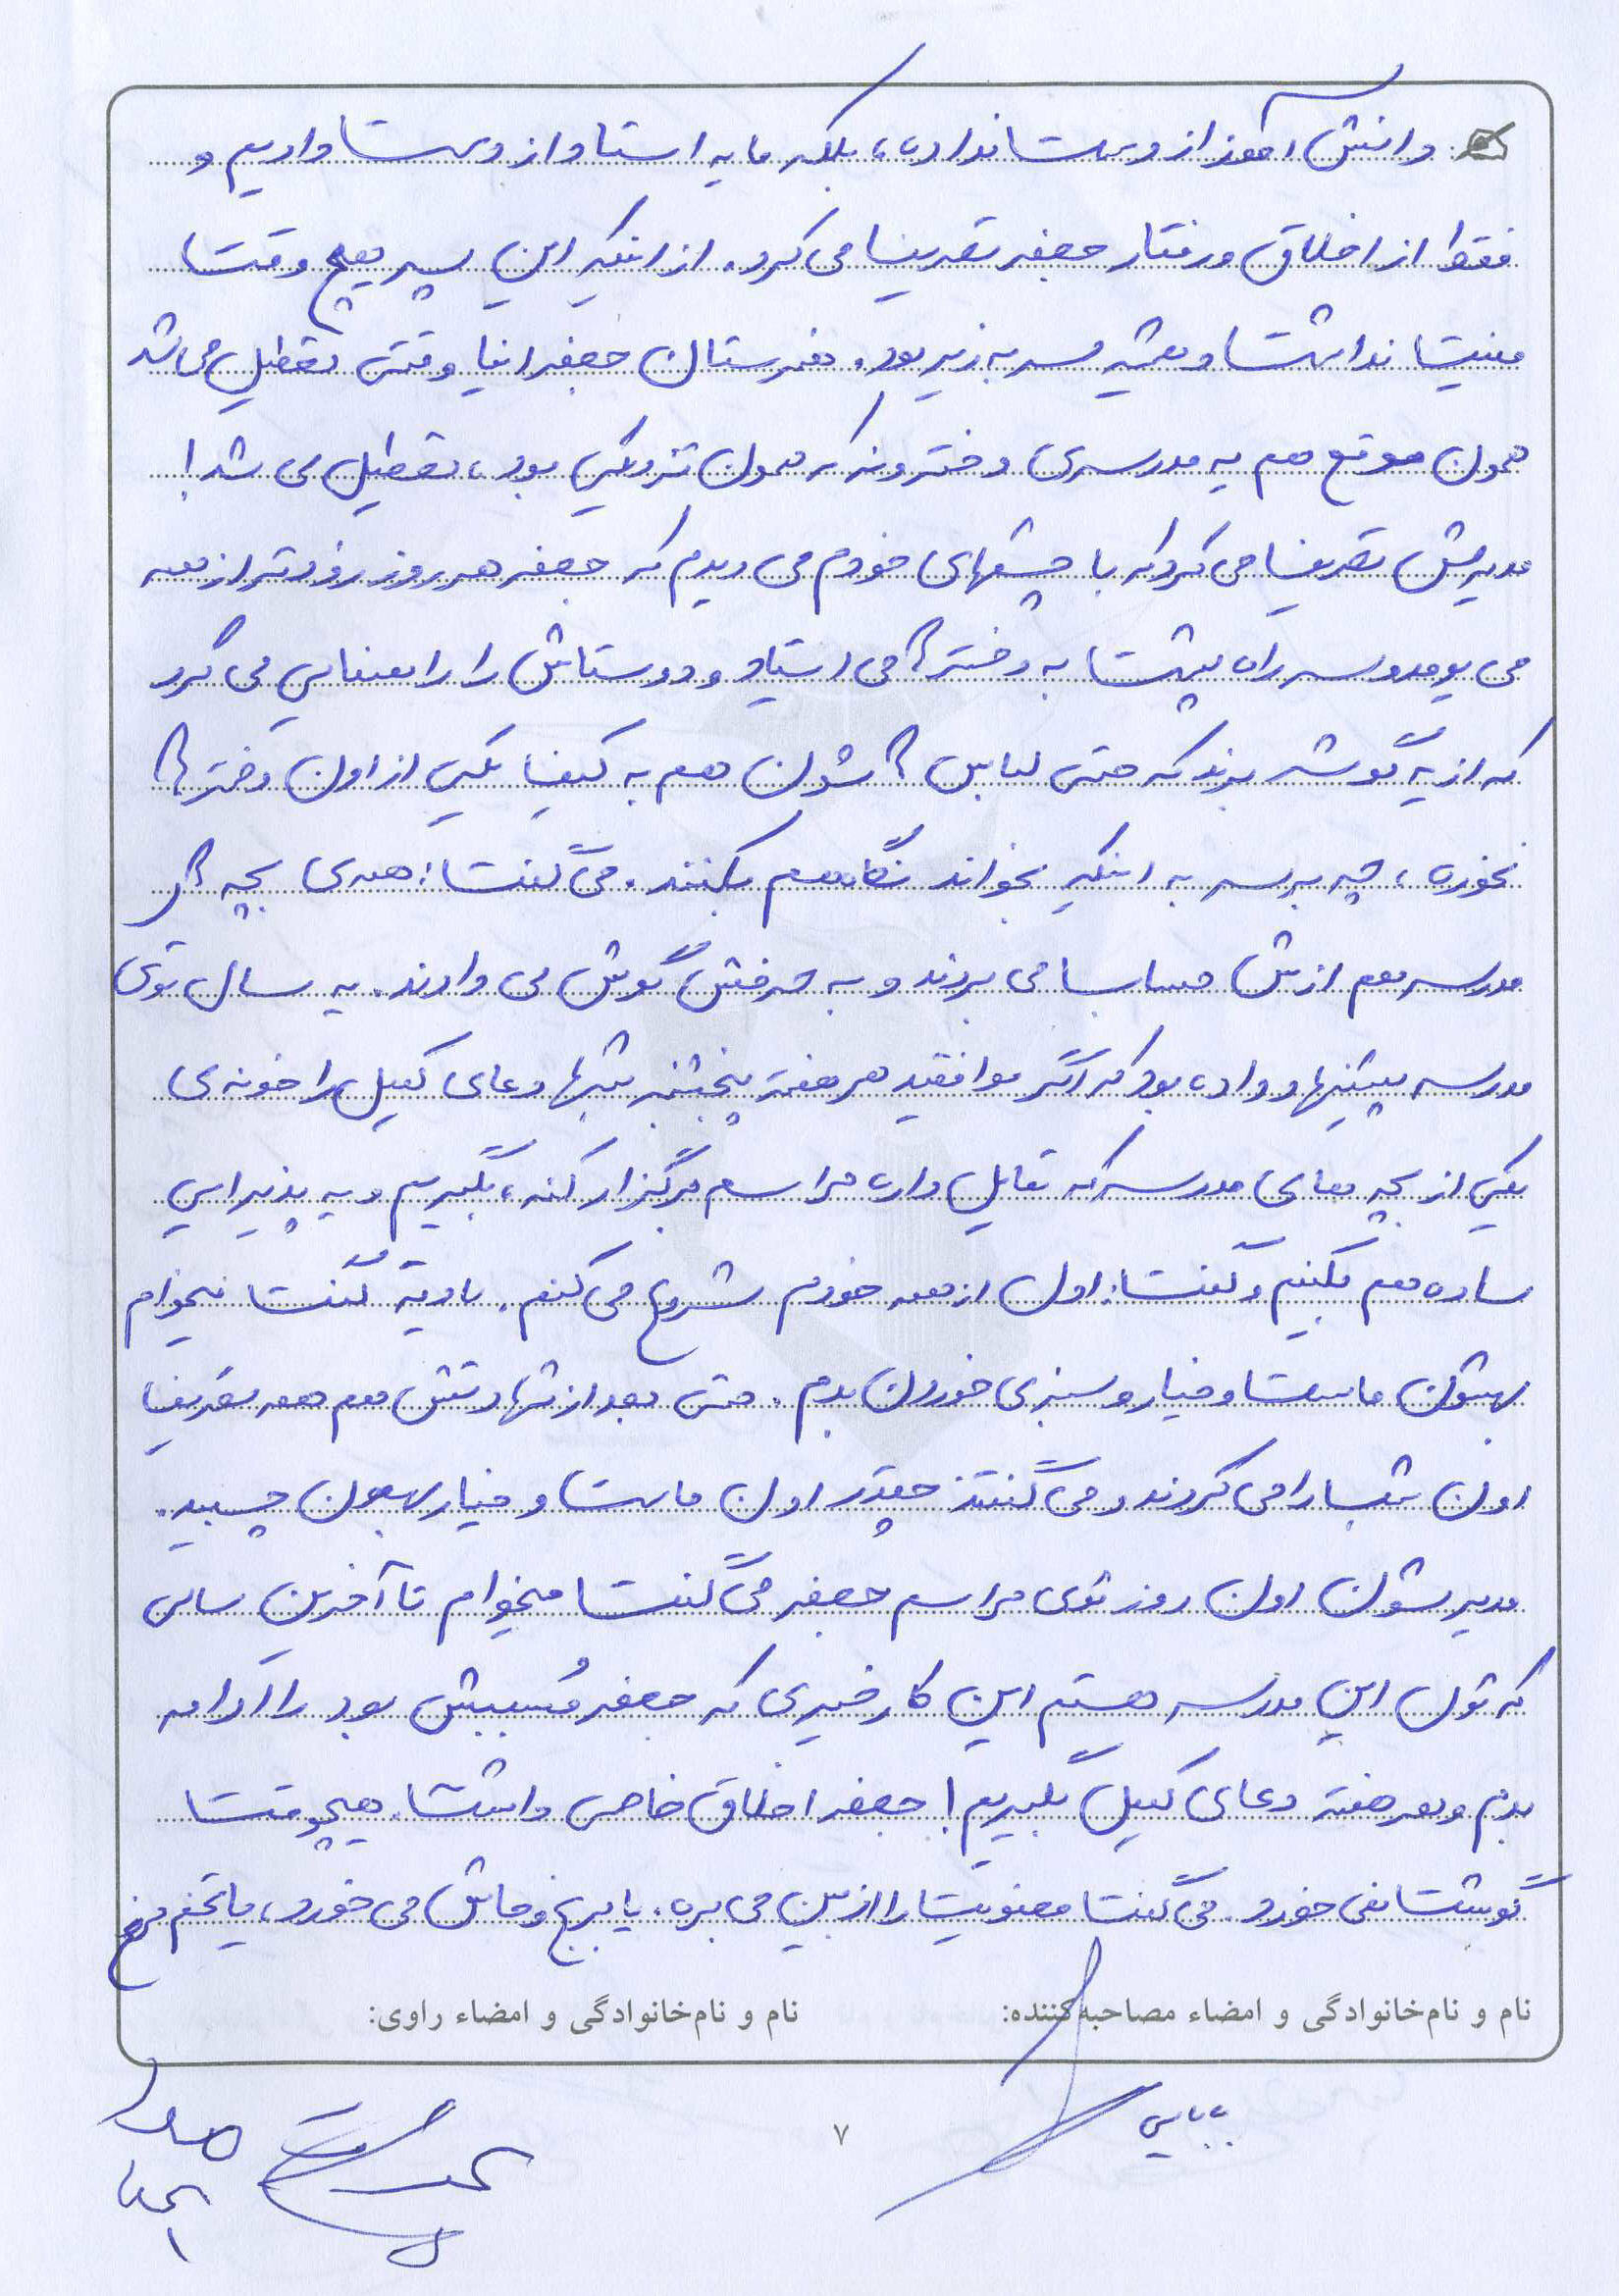 دانش آموز از دست نداده، بلکه ما یه استاد از دست دادیم و
فقط از اخلاق و رفتار جعفر تعریف می کرد. از اینکه این پسر هیچ وقت
منیت نداشت و همیشه سر به زیر بود. دبیرستان جعفر اینا وقتی تعطیل می شد
همون موقع هم یه مدرسه ی دخترونه که همون نزدیکی بود، تعطیل می شد!
مدیرش تعریف می کرد که با چشمهای خودم می دیدم که جعفر هر روز زودتر از همه
می یومد و سر راه پشت به دخترها می ایستاد و دوستاش را راهنمایی می کرد
که از یه گوشه برند که حتی لباس هاشون هم به کیف یکی از اون دخترها
نخوره، چه برسه به اینکه بخواند نگاهم بکنند. می گفت: همه ی بچه های
مدرسه هم ازش حساب می بردند و به حرفش گوش می دادند. یه سال توی
مدرسه پیشنهاد داده بود که اگر موافقید هر هفته پنجشنبه شبها دعای کمیل را خونه ی
یکی از بچه های مدرسه که تمایل داره مراسم برگزار کنه، بگیریم و یه پذیرایی
ساده هم بکنیم و گفت: اول از همه خودم شروع می کنم. یادمه گفت میخوام
بهشون ماست و خیار و سبزی خوردن بدم. حتی بعد از شهادتش هم همه تعریف
اون شب را می کردند و می گفتند چقدر اون ماست و خیار بهمون چسبید.
مدیرشون اون روز توی مراسم جعفر می گفت میخوام تا آخرین سالی
که توی این مدرسه هستم این کار خیری که جعفر مُسببش بود را ادامه
بدم و هر هفته دعای کمیل بگیریم! جعفر اخلاق خاصی داشت. هیچوقت
گوشت نمی خورد. می گفت معنویت را از بین می بره. یا برنج و ماش می خورد، یا تخم مرغ
نام و نام‌خانوادگی و امضاء مصاحبه‌کننده:
نام و نام‌خانوادگی و امضاء راوی:
بابایی
۷